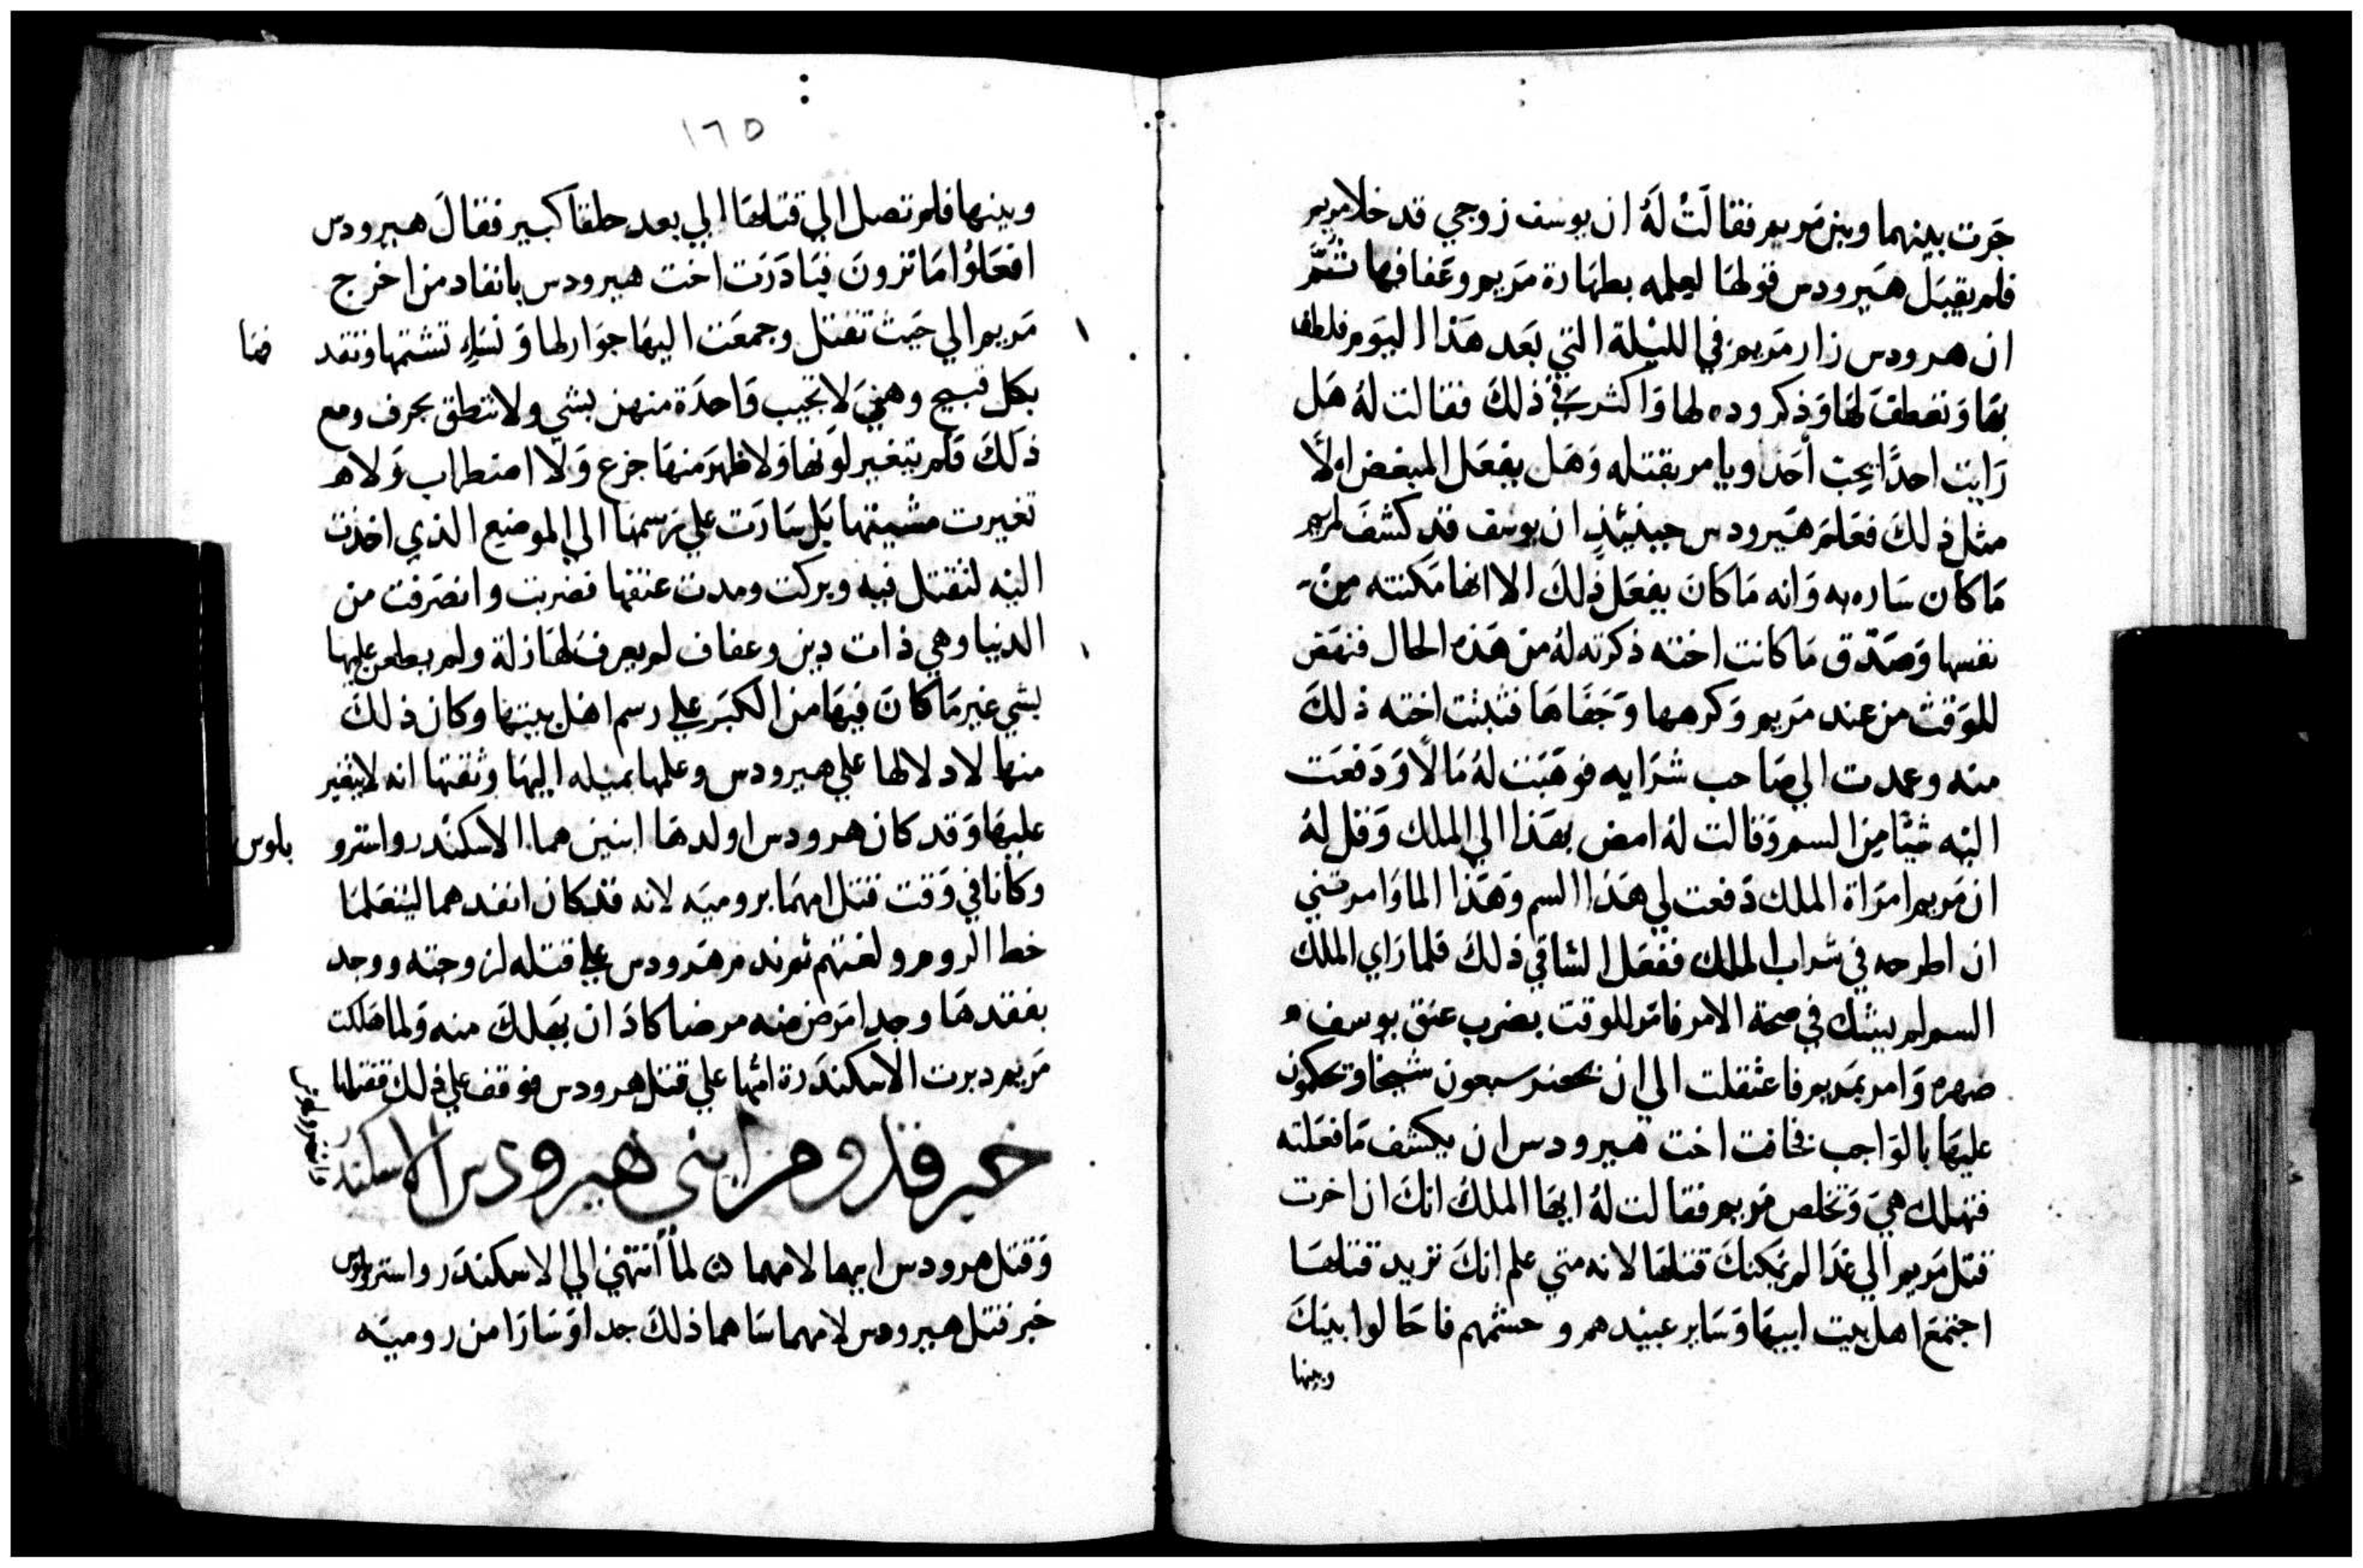 جرت بينهما وبين مريم فقالت له ان يوسف زوجي قد خلا مريم
فلم يقبل هيرودس قولها لعلمه بطهارة مريم وعفافها ثم
ان هرودس زار مريم في الليلة التي بعد هذا اليوم فلطف
بها وتعطف لها وذكر وده لها واكثر في ذلك فقالت له هل
رايت احدا يحب احد ويامر بقتله وهل يفعل المبغض اولا
مثل ذلك فعلم هيرودس حينيئذ ان يوسف قد كشف لمريم
ما كان ساره به وانه ما كان يفعل ذلك الا انها مكنته من
نفسها وصدق ما كانت اخته ذكرته له من هذه الحال فنهض
للوقت من عند مريم وكرهها وجفاها فتبثت اخته ذلك
منه وعمدت الي صاحب شرابه فوهبت له مالا ودفعت
اليه شيئا من السم وقالت له امض بهذا الي الملك وقل له
ان مريم امراة الملك دفعت لي هذا السم وهذا الما وامرتني
ان اطرحه في شراب الملك ففعل الساقي ذلك فلما راي الملك
السم لم يشك في صحة الامر فامر للوقت بضرب عنق يوسف
صهره وامر بمريم فاعتقلت الي ان يحضر سبعون شيخا وتحكمون
عليها بالواجب فخافت اخت هيرودس ان يكشف ما فعلته
فتهلك هي وتخلص مريم فقالت له ايها الملك انك ان اخرت
قتل مريم الي غدا لم يمكنك قتلها لانه متي علم انك تريد قتلها
اجتمع اهل بيت ابيها وساير عبيدهم وحشمهم فاحالوا بينك
وبينها
١٦٥
وبينها فلم تصل الي قتلها الي بعد حلقا كبير فقال هيرودس
افعلوا ما ترون فبادرت اخت هيرودس بانفاد من اخرج
مريم الي حيث تقتل وجمعت اليها جوار لها ونساء تشتمها وتقد
بكل قبيح وهي لا تجيب واحدة منهن بشي ولا تنطق بحرف ومع
ذلك فلم يتغير لونها ولا ظهر منها جزع ولا اضطراب ولا
تغيرت مشيتها بل سارت علي رسمها الي الموضع الذي اخذت
اليه لتقتل فيه وبركت ومدت عنقها فضربت وانصرفت من
الدنيا وهي ذات دين وعفاف لم يعرف لها زلة ولم يطعن عليها
بشي غير ما كان فيها من الكبر علي رسم اهل بيتها وكان ذلك
منها لادلالها علي هيرودس وعلمها بميله اليها وثقتها انه لا يتغير
عليها وقد كان هرودس اولدها ابنين هما الاسكندر واسترو
بلوس
وكانا في وقت قتل امهما برومية لانه قد كان انفدهما ليتعلما
خط الروم ولغتهم ثم ندم هرودس علي قتله لزوجته ووجد
بفقدها وجدا مرض منه مرضا كاد ان يهلك منه ولما هلكت
مريم دبرت الاسكندرة امها علي قتل هرودس فوقف علي ذلك فقتلها
خبر قدوم ابني هيرودس الاسكندر
وقتل هرودس ابيهما لامهما لما انتهي الي الاسكندر واسترو بلوس
خبر قتل هيرودس لامهما ساهما ذلك جدا وسارا من رومية